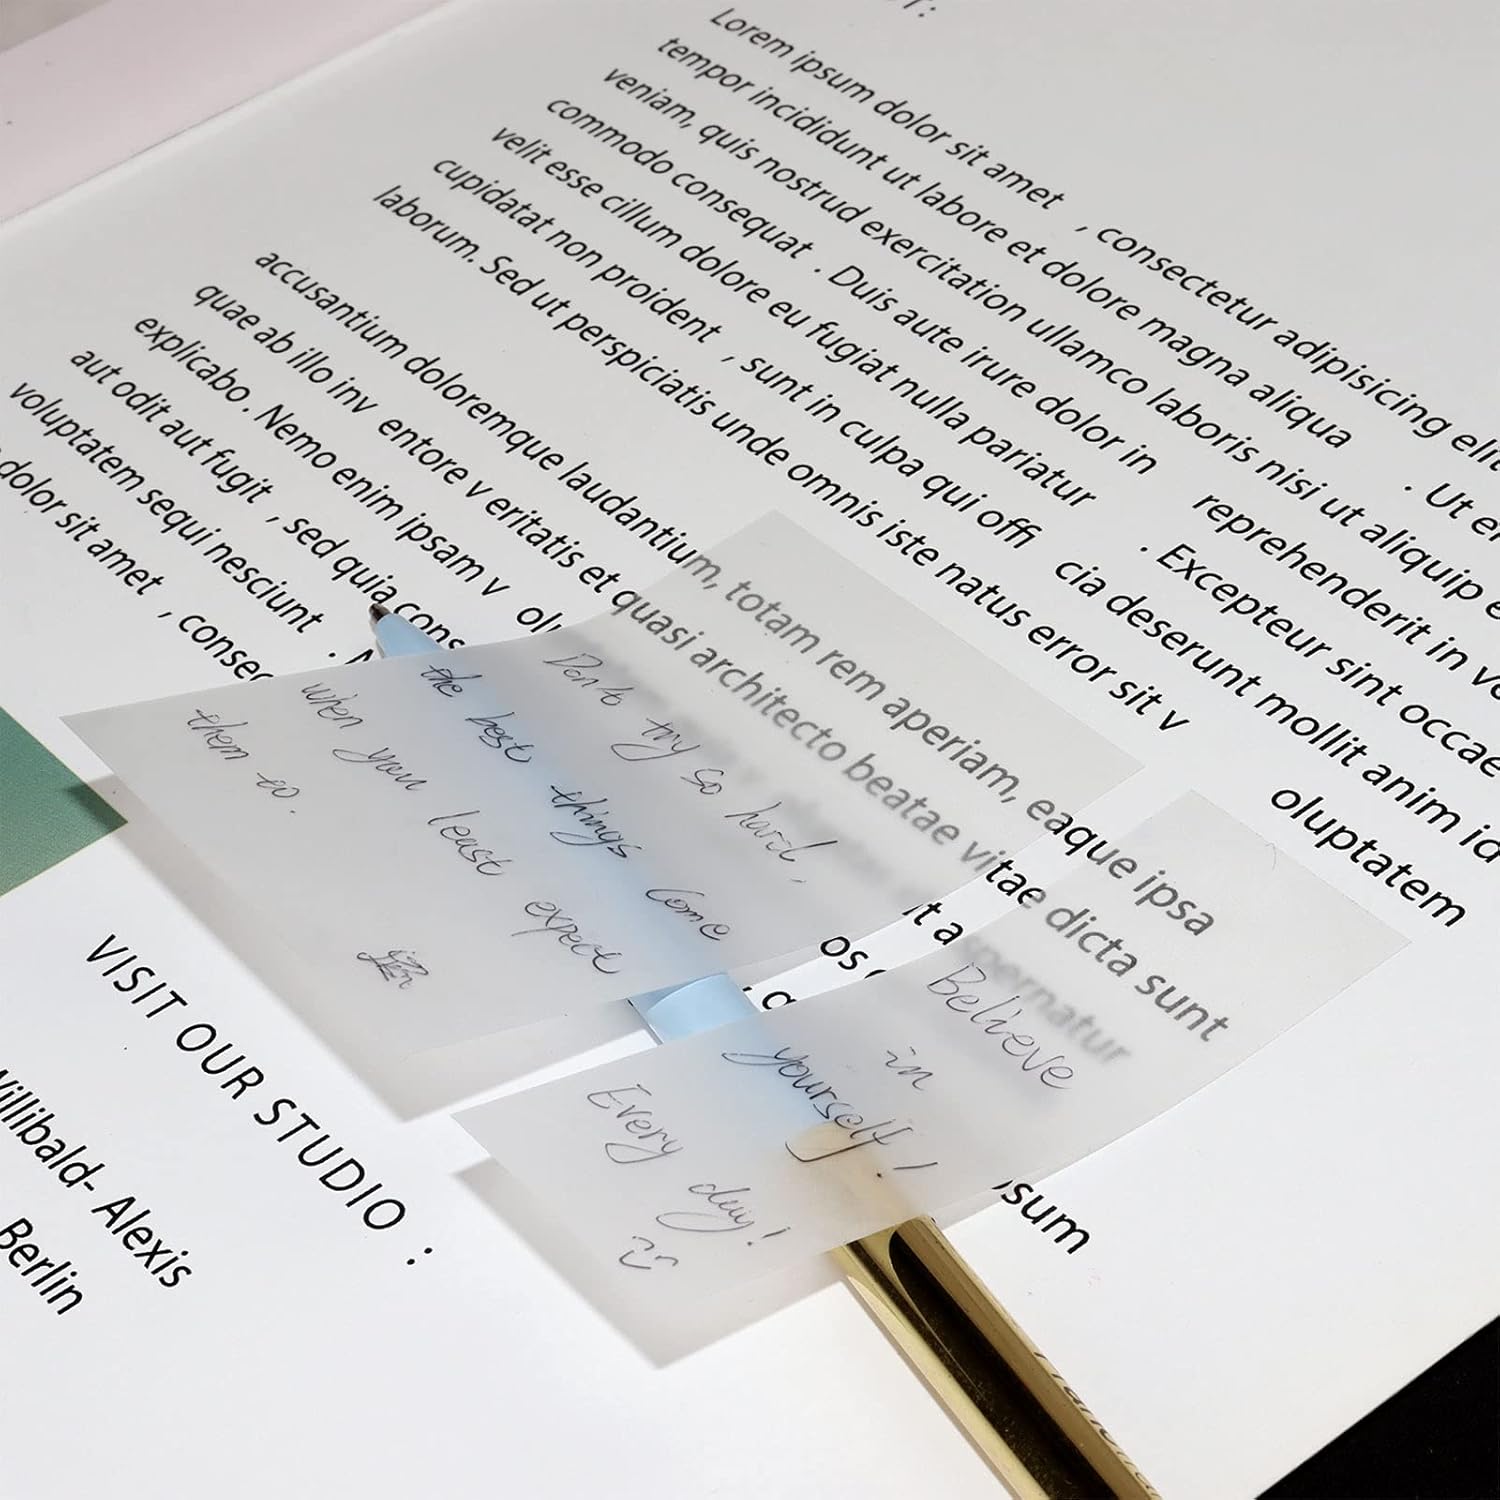 Lorem ipsum dolor sit amet , consectetur adipisicing elit
tempor incididunt ut labore et dolore magna aliqua . Ut en
veniam, quis nostrud exercitation ullamco laboris nisi ut aliquip e
commodo consequat . Duis aute irure dolor in reprehenderit in vo
velit esse cillum dolore eu fugiat nulla pariatur . Excepteur sint occae
cupidatat non proident , sunt in culpa qui offi cia deserunt mollit anim id
laborum. Sed ut perspiciatis unde omnis iste natus error sit v oluptatem
accusantium doloremque laudantium, totam rem aperiam, eaque ipsa
quae ab illo inv entore v eritatis et quasi architecto beatae vitae dicta sunt
explicabo . Nemo enim ipsam v olu it a spernatur
aut odit aut fugit , sed quia cons os
voluptatem sequi nesciunt . N , q sum
dolor sit amet , consec
Don't try so hard,
the best things come
when you least expect
them to.
Believe
in
yourself!
Every day!
VISIT OUR STUDIO :
Willibald- Alexis
Berlin